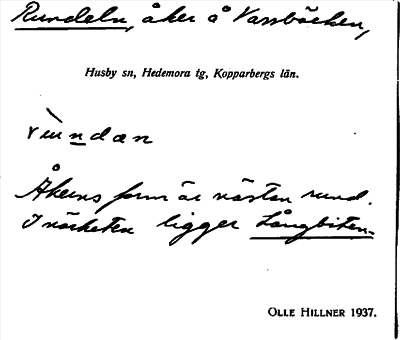 Rundeln, åker å Vassbäcken,
Husby sn, Hedemora tg, Kopparbergs län.
Åkerns form är nästan rund.
I närheten ligger Långbiten.
OLLE HILLNER 1937.